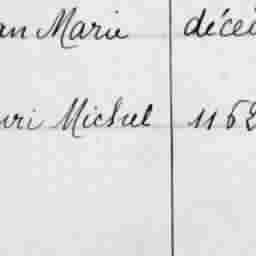 an Marie décé
uri Michel 1162